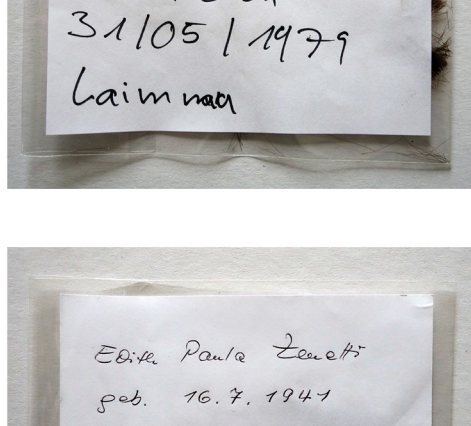 31/05/1979
Laimnau
Edith Paula Zenetti
geb. 16.7.1941